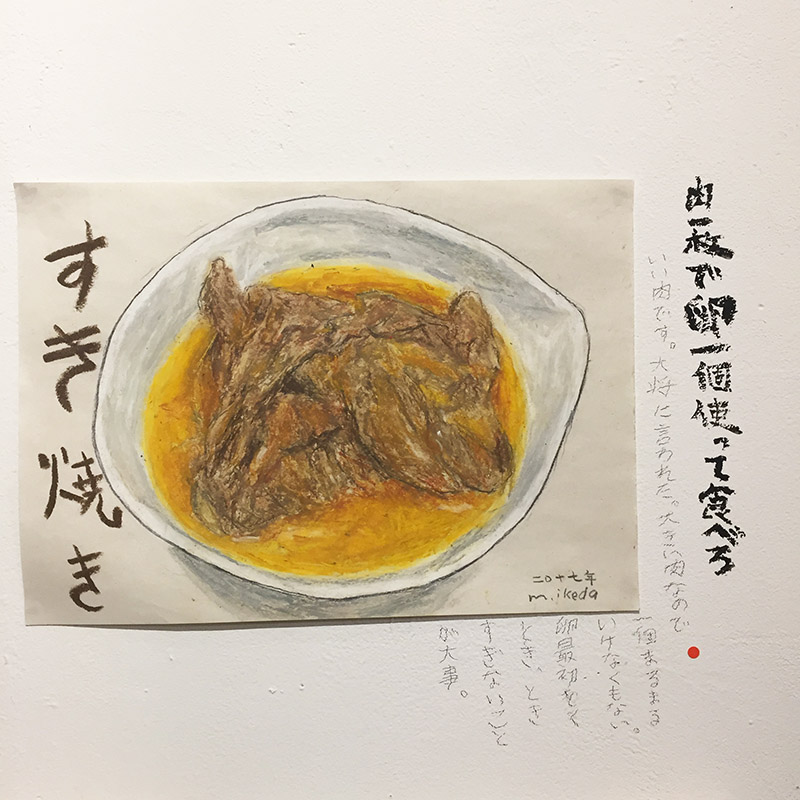 肉一枚で卵一個使って食べろ
いい肉です。大将に言われた。大きい肉なので
一個まるまる
いけなくもない。
卵最初を
とき、とき
すぎないこと
が大事。
すき焼き
二〇十七年
m.ikeda